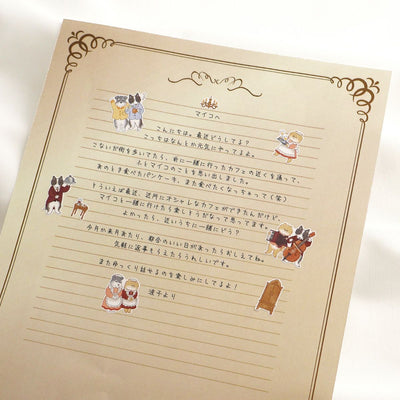 マイコへ
こんにちは。最近どうしてる?
こっちはなんとか元気にやってるよ。
こないだ街を歩いてたら、前に一緒に行ったカフェの近くを通って、
ふとマイコのことを思い出しました。
あのとき食べたパンケーキ、また食べたくなっちゃって(笑)
そういえば最近、近所にオシャレなカフェができたんだけど、
マイコと一緒に行けたら楽しそうだなって思ってます。
よかったら、近いうちに一緒にどう?
今月か来月あたり、都合のいい日があったらおしえてね。
気軽に返事もらえたらうれしいです。
またゆっくり話せるのを楽しみにしてるよ!
涼子より